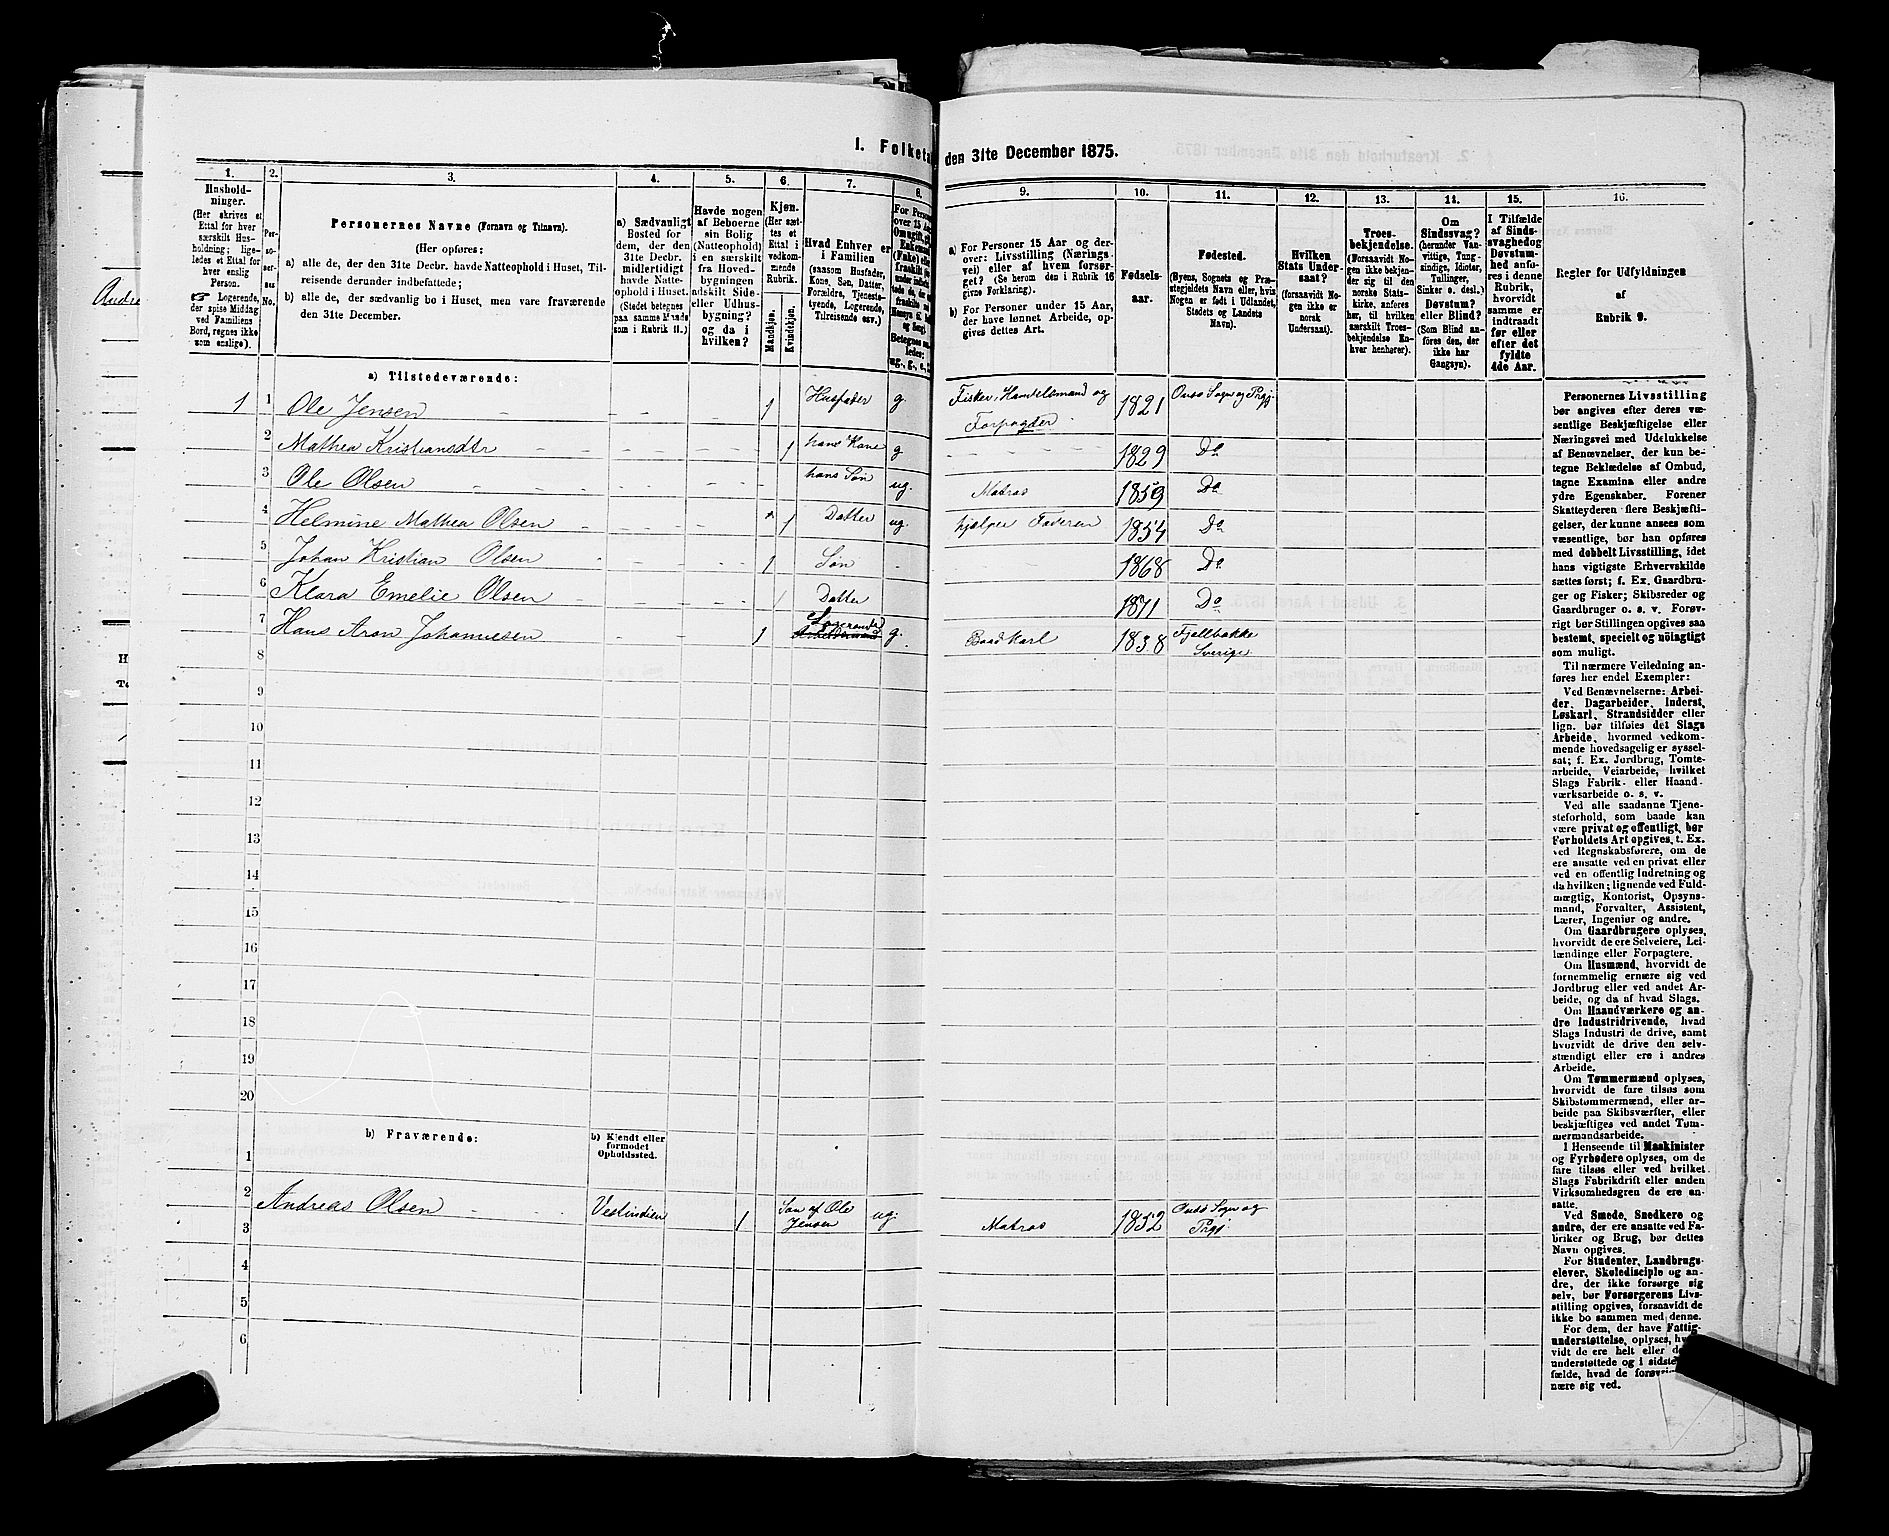 I. Folketa
den 31te December 1875.
1.
Hushold-
ninger.
(Her skrives et
Ettal for hver
særskilt Hus-
holdning; lige-
ledes et Ettal for
hver enslig
Person.
☞ Logerende,
der spise Middag
ved Familiens
Bord, regnes ikke
som enslige).
2.
Per-
so-
ner-
nes
No.
3.
Personernes Navne (Fornavn og Tilnavn).
(Her opføres:
a) alle de, der den 31te Decbr. havde Natteophold i Huset, Til-
reisende derunder indbefattede;
b) alle de, der sædvanlig bo i Huset, men vare fraværende
den 31te December.
4.
a) Sædvanligt
Bosted for
dem, der den
31te Decbr.
midlertidigt
havde Natte-
ophold i Huset.
(Stedet betegnes
paa samme Maade
som i Rubrik 11.)
5.
Havde nogen
af Beboerne
sin Bolig
(Natteophold)
i en særskilt
fra Hoved-
bygningen
adskilt Side-
eller Udhus-
bygning?
og da i
hvilken?
6.
Kjøn.
(Her sæt-
tes et
Ettal i
vedkom-
mende
Rubrik.
Mandkjøn.
Kvindekjøn.
7.
Hvad Enhver er
i Familien
(saasom Husfader,
Kone, Søn, Datter,
Forældre, Tjeneste-
tyende, Logerende,
Tilreisende osv.)
8.
For Person
over 15 Aar
9.
a) For Personer 15 Aar og der-
over: Livsstilling (Nærings-
vei) eller af hvem forsør-
get. (Se herom den i Rubrik 16
givne Forklaring).
b) For Personer under 15 Aar,
der have lønnet Arbeide, op-
gives dettes Art.
10.
Fødsels-
aar.
11.
Fødested.
(Byens, Sognets og Præ-
stegjeldets Navn eller, hvis
Nogen er født i Udlandet,
Stedets og Landets
Navn).
12.
Hvilken
Stats Under-
saat?
(forsaavidt No-
gen ikke er
norsk
Undersaat).
13.
Troes-
bekjendelse.
(Forsaavidt No-
gen ikke bekjen-
der sig til den
norske Stats-
kirke, anføres
her, til hvilken
særskilt Troes-
bekjendelse En-
hver henhører).
14.
Om
Sindssvag?
(herunder Van-
vittige, Tung-
sindige, Idioter,
Tullinger,
Sinker o. desl.)
Døvstum?
eller Blind?
(Som Blind an-
føres den, der
ikke har
Gangsyn).
15.
I Tilfælde
af Sinds-
svaghed og
Døvstum-
hed anfø-
res i denne
Rubrik,
hvorvidt
samme er
indtraadt
før eller
efter det
fyldte
4de Aar.
16.
Regler for Udfyldningen
af
Rubrik 9.
a) Tilstedeværende:
1 1 Ole Jensen 1 Husfader g. Fisker, Handelsmand og 1821 Onsø Sogn og Prgj.
Forpagter
2 Mathea Kristiansdtr 1 hans Kone g 1829 Do
3 Ole Olsen hans Søn ug. Matros 1859 Do
4 Helmine Mathea Olsen 1 Datter ug. hjælper Faderen 1854 Do
5 Johan Kristian Olsen 1 Søn 1868 Do
6 Klara Emelie Olsen 1 Datter 1871 Do
7 Hans Aron Johannesen 1 Logerende g. Baadkarl 1838 Fjellbakke
Sverige
8
9
10
11
12
13
14
15
16
17
18
19
20
b) Fraværende:
b) Kjendt eller
formodet
Opholdssted.
1
2 Andreas Olsen Vestindien 1 Søn af Ole ug. Matros 1852 Onsø Sogn og
3 Jensen Prgj
4
5
6
Personernes Livsstilling
bør angives efter deres væ-
sentlige Beskjæftigelse eller
Næringsvei med Udelukkelse
af Benævnelser, der kun be-
tegne Beklædelse af Ombud,
tagne Examina eller andre
ydre Egenskaber. Forener
Skatteyderen flere Beskjæfti-
gelser, der kunne ansees som
væsentlige, bør han opføres
med dobbelt Livsstilling, idet
hans vigtigste Erhvervskilde
sættes først; f. Ex. Gaardbru-
ger og Fisker; Skibsreder og
Gaardbruger o. s. v. Forøv-
rigt bør Stillingen opgives saa
bestemt, specielt og nöiagtigt
som muligt.
Til nærmere Veiledning an-
føres her endel Exempler:
Ved Benævnelserne: Arbei-
der, Dagarbeider, Inderst,
Løskarl, Strandsidder eller
lign. bør tilføies det Slags
Arbeide, hvormed vedkom-
mende hovedsagelig er syssel-
sat; f. Ex. Jordbrug, Tomte-
arbeide, Veiarbeide, hvilket
Slags Fabrik- eller Haand-
værksarbeide o. s. v.
Ved alle saadanne Tjene-
steforhold, som baade kan
være privat og offentligt, bør
Forholdets Art opgives, t. Ex.
ved Regnskabsførere, om de
ere ansatte ved en privat eller
ved en offentlig Indretning og
da hvilken; lignende ved Fuld-
mægtig, Kontorist, Opsyns-
mand, Forvalter, Assistent,
Lærer, Ingeniør og andre.
Om Gaardbrugere oplyses,
hvorvidt de ere Selveiere, Lei-
lændinge eller Forpagtere.
Om Husmænd, hvorvidt de
fornemmelig ernære sig ved
Jordbrug eller ved andet Ar-
beide, og da af hvad Slags.
Om Haandværkere og an-
dre Industridrivende, hvad
Slags Industri de drive, samt
hvorvidt de drive den selv-
stændigt eller ere i andres
Arbeide.
Om Tømmermænd oplyses,
hvorvidt de fare tilsøs som
Skibstømmermænd, eller ar-
beide paa Skibsværfter, eller
beskjæftiges ved andet Tøm-
mermandsarbeide.
I Henseende til Maskinister
og Fyrbødere oplyses, om de
fare tilsøs eller ved hvilket
Slags Fabrikdrift eller anden
Virksomhedsgren de ere an-
satte.
Ved Smede, Snedkere og
andre, der ere ansatte ved Fa-
briker og Brug, bør dettes
Navn opgives.
For Studenter, Landbrugs-
elever, Skoledisciple og an-
dre, der ikke forsørge sig
selv, bør Forsørgerens Livs-
stilling opgives, forsaavidt de
ikke bo sammen med denne.
For dem, der have Fattig-
understøttelse, oplyses,
vidt de ere helt eller
understøttede og i sidste
fælde, hvad de
nære sig ved.